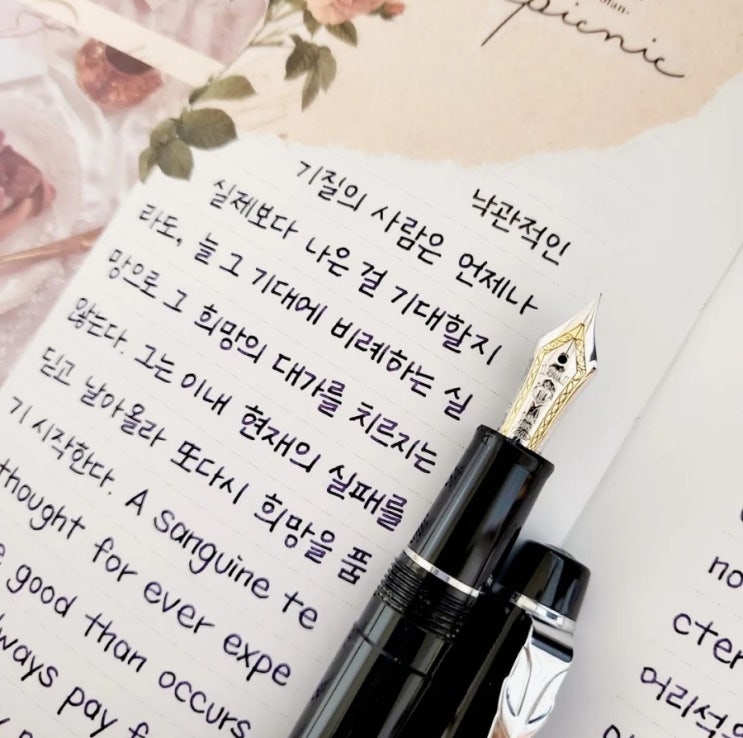 picnic
낙관적인
기질의 사람은 언제나
실제보다 나은 걸 기대할지
라도, 늘 그 기대에 비례하는 실
망으로 그 희망의 대가를 치르지는
않는다. 그는 이내 현재의 실패를
딛고 날아올라 또다시 희망을 품
기 시작한다. A sanguine te
thought for ever expe
good than occurs
lways pay f
no
cter
어리석